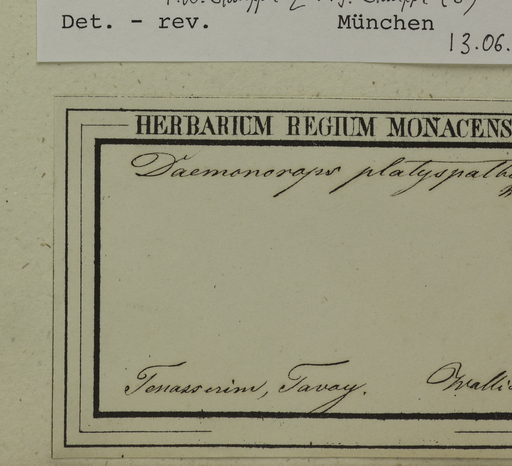 Det. - rev. München
13.06.
HERBARIUM REGIUM MONACENS
Daemonorops platyspatha
Tenasserim, Tavoy. Wallic